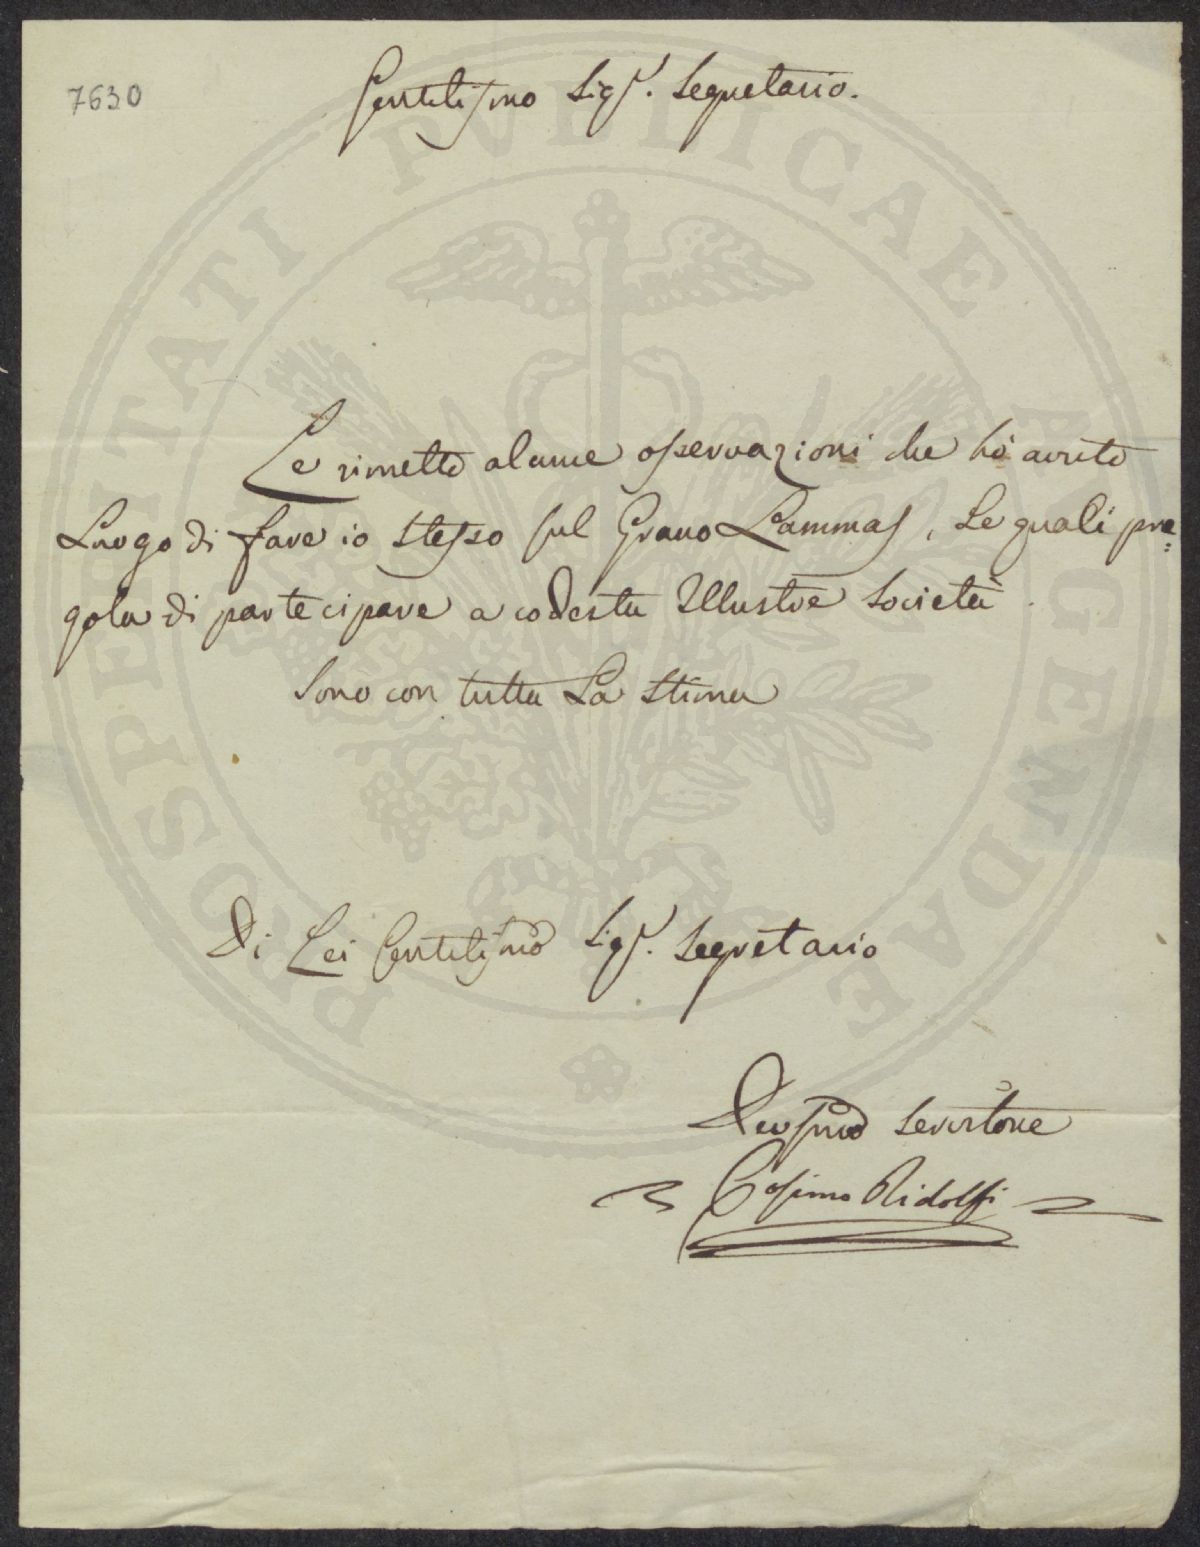 7630
Gentilissmo Sigr. Segretario.
Le rimetto alcune osservazioni che hò avuto
Luogo di fare io stesso sul Grano Lammas, le quali pre=
gola di partecipare a codesta Illustre Società.
Sono con tutta La stima
Di Lei Gentilissmo Sigr. Segretario
Devotissmo Servitore
Cosimo Ridolfi
PROSPERITATI PVBLICAE AVGENDAE